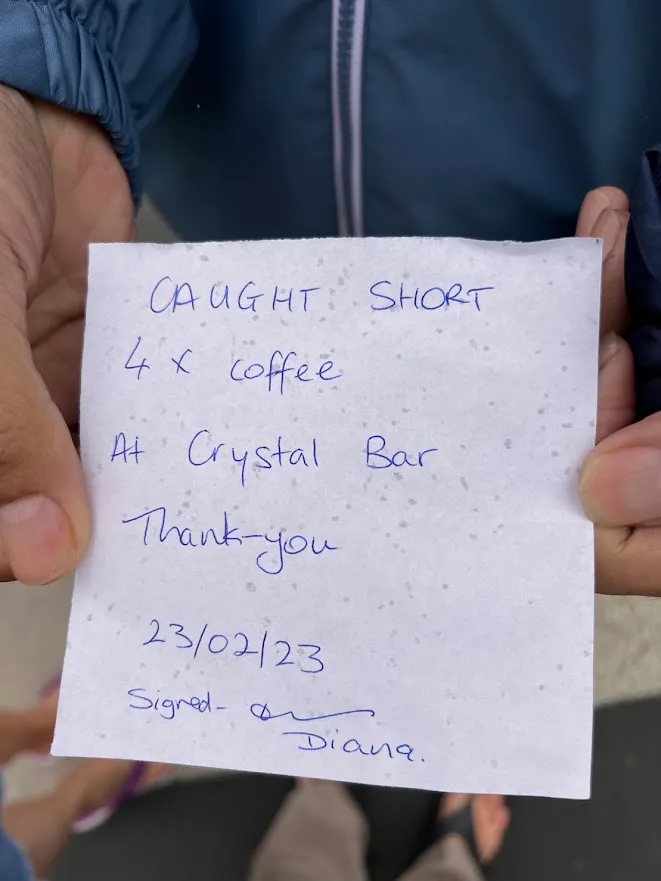 CAUGHT SHORT
4 x coffee
At Crystal Bar
Thank-you
23/02/23
Signed-
Diana.